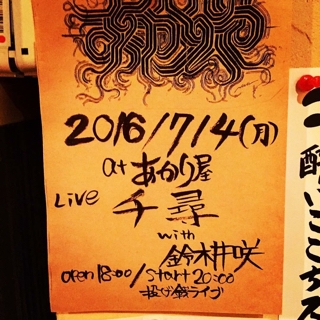 2016/7/4(月)
at あかり屋
Live 千尋
with
鈴木井咲
open 18:00/Start 20:00
投げ銭ライブ
酔いごこち